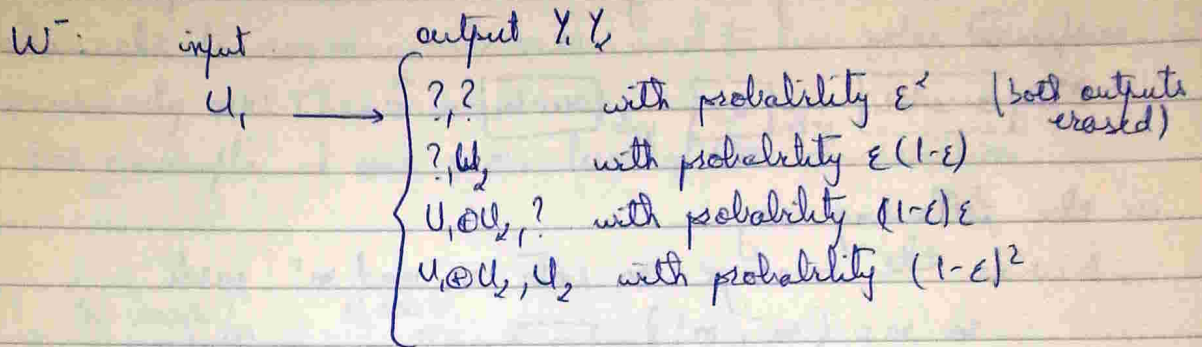 W⁻: input output Y₁ Y₂
U₁ → ?,? with probability ε² (both outputs erased)
?,U₂ with probability ε(1-ε)
U₁⊕U₂,? with probability (1-ε)ε
U₁⊕U₂,U₂ with probability (1-ε)²